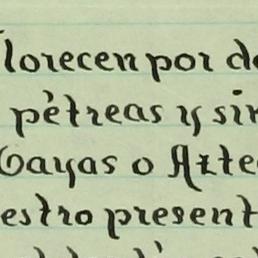 florecen por de
pétreas y sin
Mayas o Azte
estro present